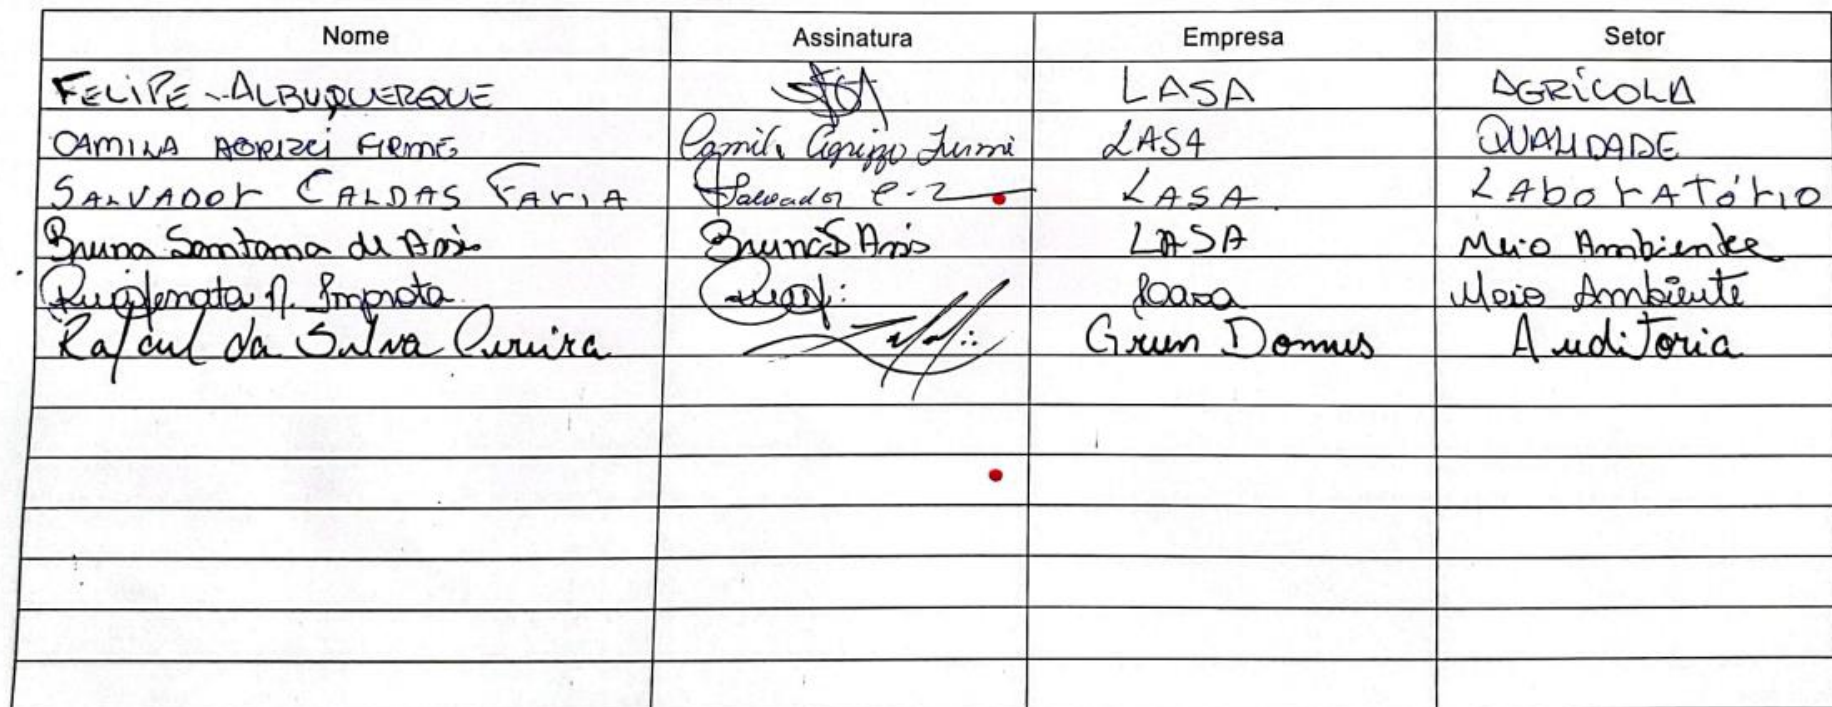 Nome Assinatura Empresa Setor
FELIPE ALBUQUERQUE LASA AGRÍCOLA
CAMILA FIRME Camila LASA QUALIDADE
SALVADOR CALDAS FARIA Salvador LASA LABORATÓRIO
Bruna Santana de Assis Bruna S Assis LASA Meio Ambiente
Improta Meio Ambiente
Rafael da Silva Pereira Grun Domus Auditoria